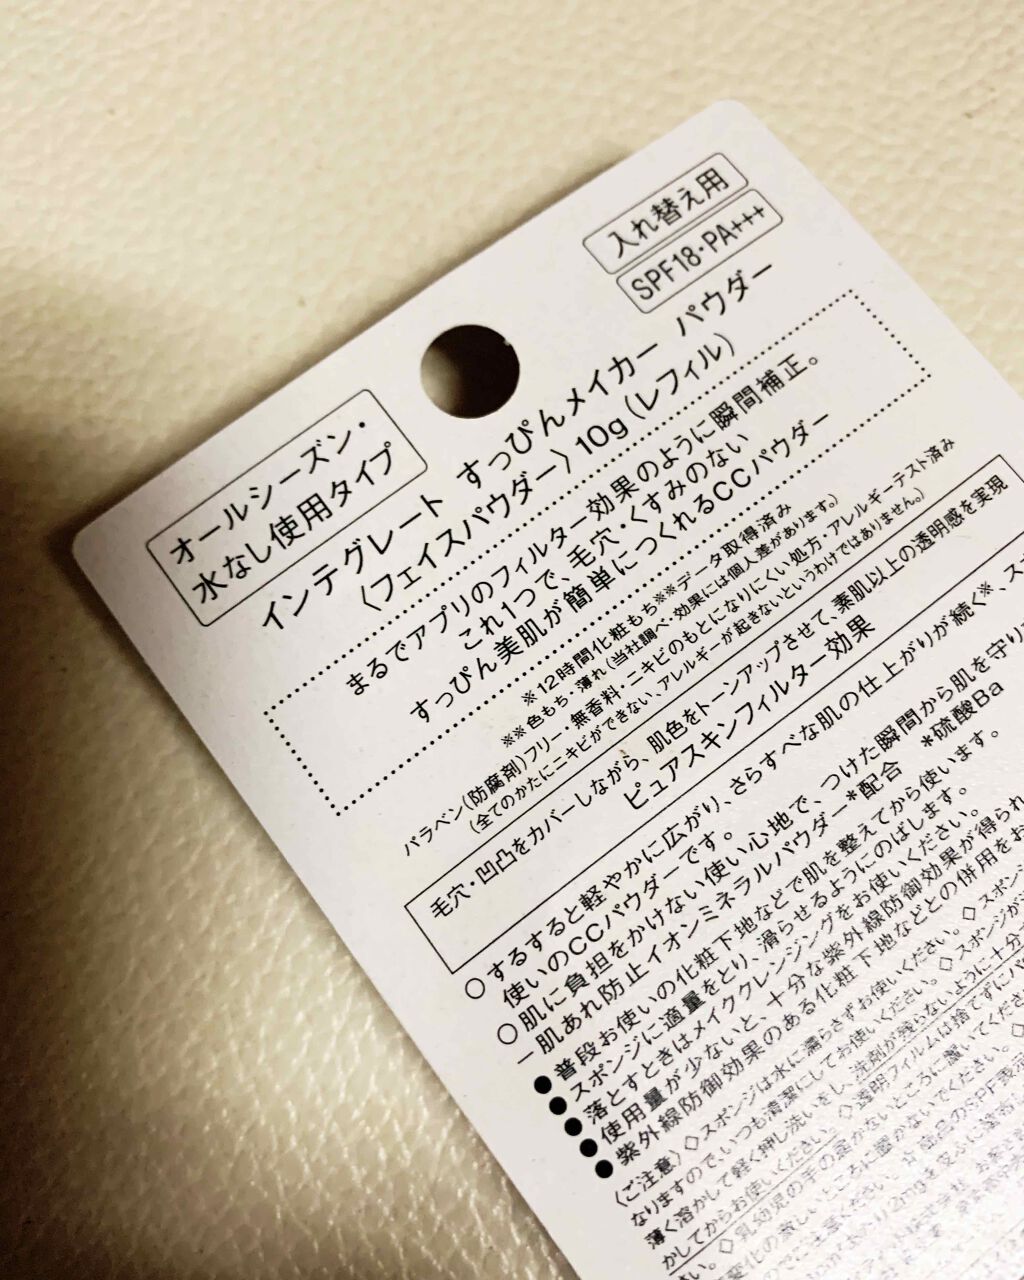 入れ替え用
SPF18・PA+++
オールシーズン・
水なし使用タイプ
インテグレート すっぴんメイカー パウダー
〈フェイスパウダー〉10g(レフィル)
まるでアプリのフィルター効果のように瞬間補正。
これ1つで、毛穴・くすみのない
すっぴん美肌が簡単につくれるCCパウダー
※12時間化粧もち※※データ取得済み
※※色もち・薄れ(当社調べ・効果には個人差があります。)
パラベン(防腐剤)フリー・無香料・ニキビのもとになりにくい処方・アレルギーテスト済み
(全てのかたにニキビができない、アレルギーが起きないというわけではありません。)
毛穴・凹凸をカバーしながら、肌色をトーンアップさせて、素肌以上の透明感を実現
ピュアスキンフィルター効果
○するすると軽やかに広がり、さらすべな肌の仕上がりが続く※、
使いのCCパウダーです。
○肌に負担をかけない使い心地で、つけた瞬間から肌を守り
−肌あれ防止イオンミネラルパウダー*配合 *硫酸Ba
●普段お使いの化粧下地などで肌を整えてから使います。
●スポンジに適量をとり、滑らせるようにのばします。
●落とすときはメイククレンジングをお使いください。
●使用量が少ないと、十分な紫外線防御効果が得られ
●紫外線防御効果のある化粧下地などとの併用をお
〈ご注意〉◇スポンジは水に濡らさずお使いください。◇スポンジが
なりますので、いつも清潔にしてお使いください。◇スポンジが
薄く溶かして軽く押し洗いをし、洗剤が残らないように十分
かしてからお使いください。◇透明フィルムは捨てずにパ
◇乳幼児の手の届かないところに置いてください。